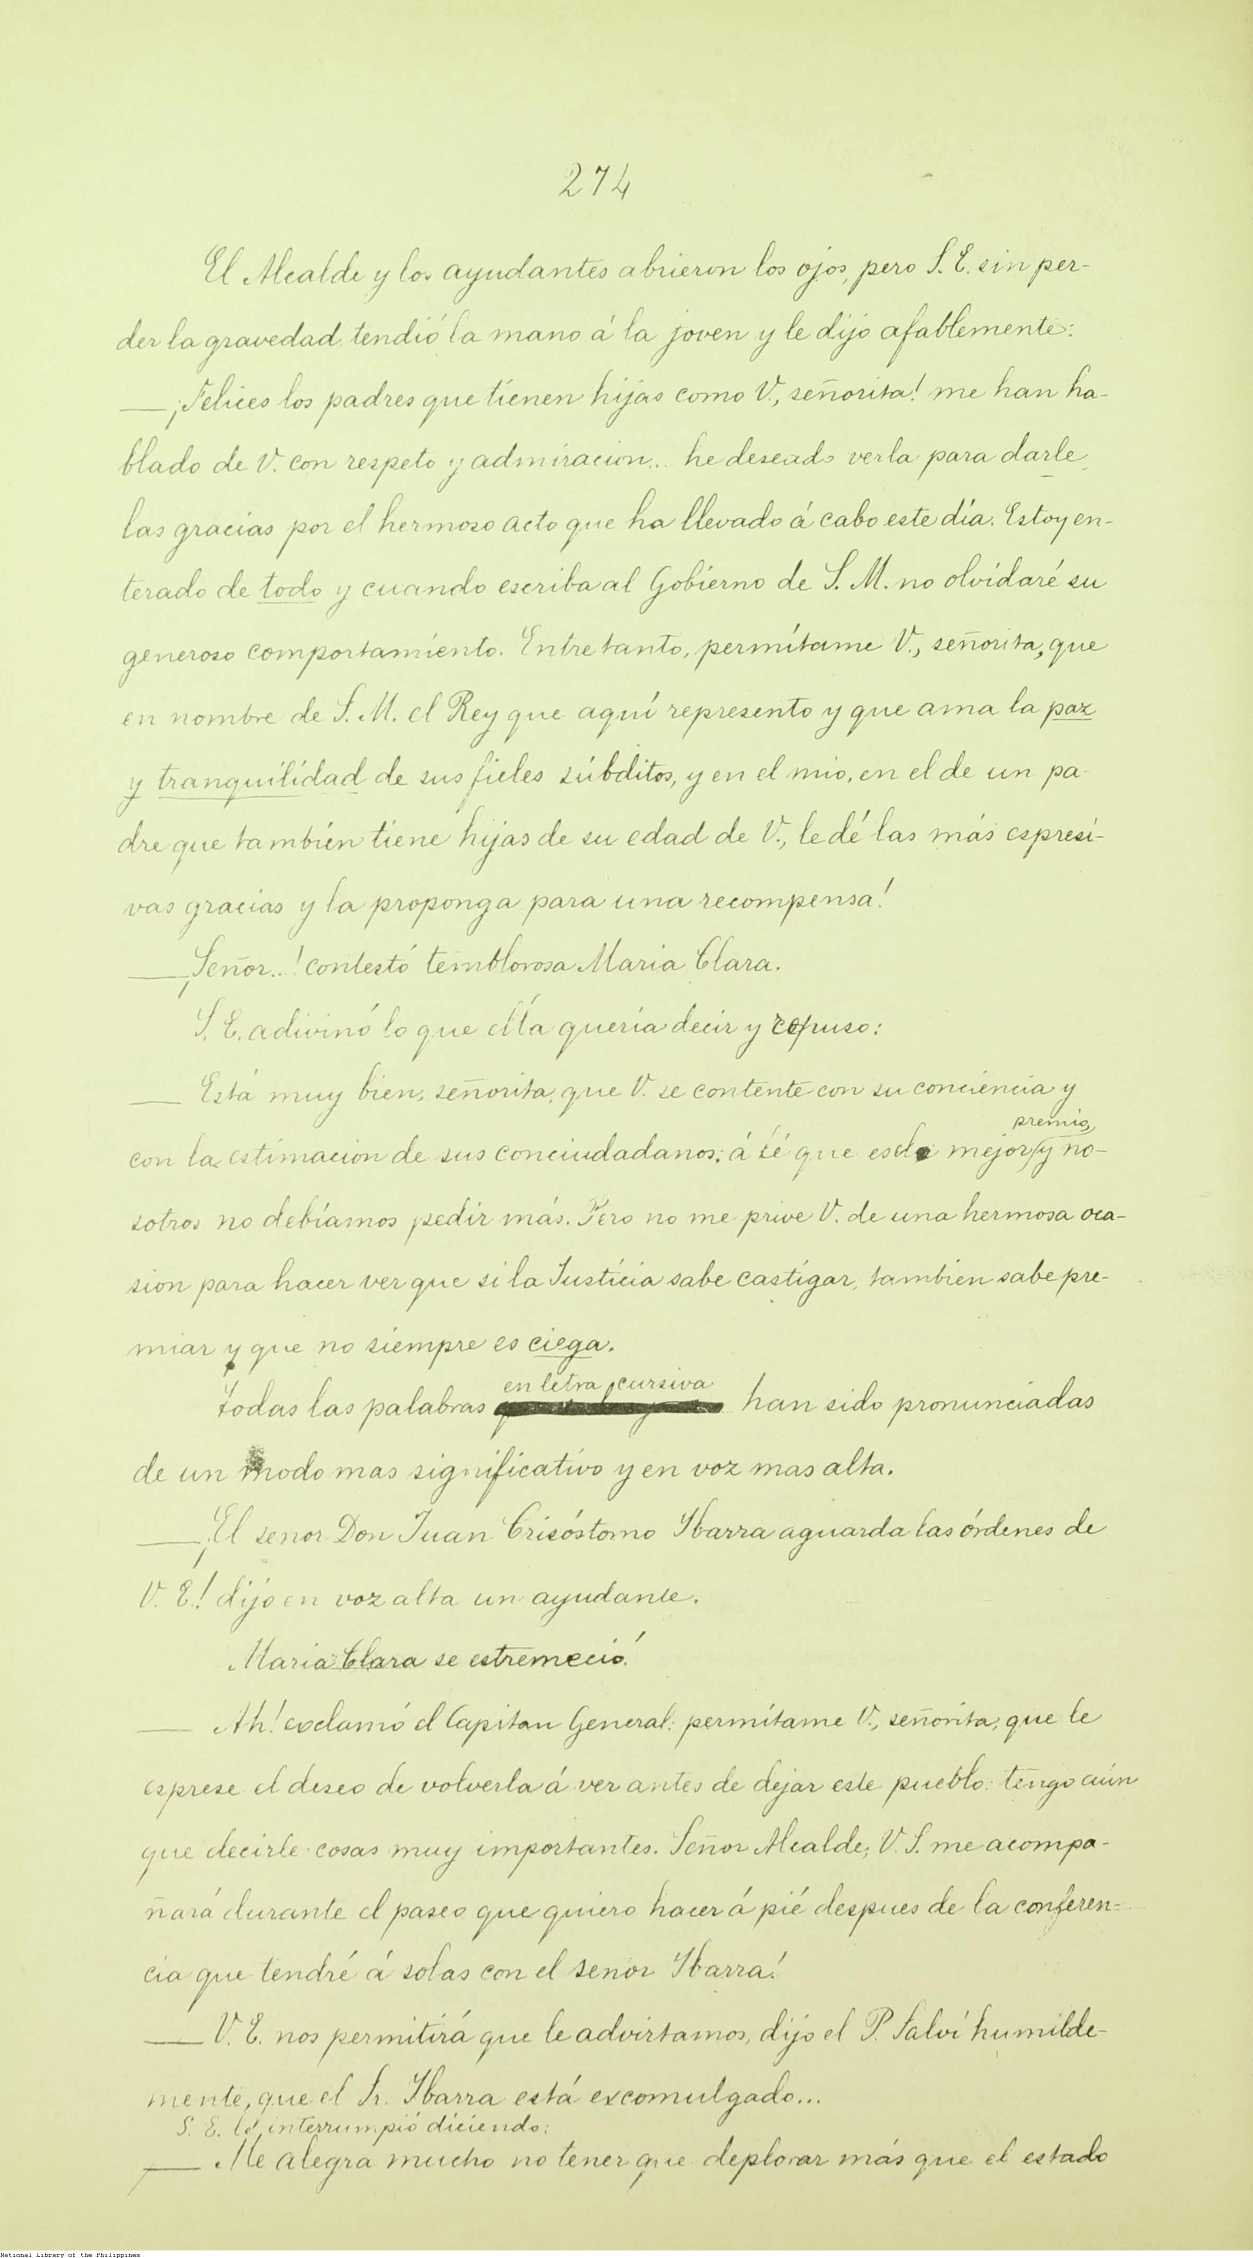 274
El Alcalde y los ayudantes abrieron los ojos, pero S. E. sin per-
der la gravedad tendió la mano á la joven y le dijo afablemente:
— ¡Felices los padres que tienen hijas como V., señorita! me han ha-
blado de V. con respeto y admiracion... he deseado verla para darle
las gracias por el hermoso acto que ha llevado á cabo este día. Estoy en-
terado de todo y cuando escriba al Gobierno de S. M. no olvidaré su
generoso comportamiento. Entre tanto, permítame V., señorita, que
en nombre de S. M. el Rey que aquí represento y que ama la paz
y tranquilidad de sus fieles súbditos, y en el mio, en el de un pa-
dre que también tiene hijas de su edad de V., le dé las más espresi-
vas gracias y la proponga para una recompensa!
— ¡Señor..! contestó temblorosa Maria Clara.
S. E. adivinó lo que ella quería decir y repuso:
— Está muy bien, señorita, que V. se contente con su conciencia y
con la estimacion de sus conciudadanos; á fé que es el mejor premio, y no-
sotros no debíamos pedir más. Pero no me prive V. de una hermosa oca-
sion para hacer ver que si la Justicia sabe castigar, tambien sabe pre-
miar y que no siempre es ciega.
Todas las palabras en letra cursiva han sido pronunciadas
de un modo mas significativo y en voz mas alta.
— ¡El senor Don Juan Crisóstomo Ibarra aguarda las órdenes de
V. E.! dijo en voz alta un ayudante.
Maria Clara se estremeció.
— Ah! esclamó el Capitan General; permítame V., señorita, que le
esprese el deseo de volverla á ver antes de dejar este pueblo: tengo aún
que decirle cosas muy importantes. Señor Alcalde, V. S. me acompa-
ñará durante el paseo que quiero hacer á pié despues de la conferen-
cia que tendré á solas con el senor Ibarra!
— V. E. nos permitirá que le advirtamos, dijo el P. Salví humilde-
mente, que el Sr. Ibarra está excomulgado...
S. E. le interrumpió diciendo:
— Me alegra mucho no tener que deplorar más que el estado
National Library of the Philippines